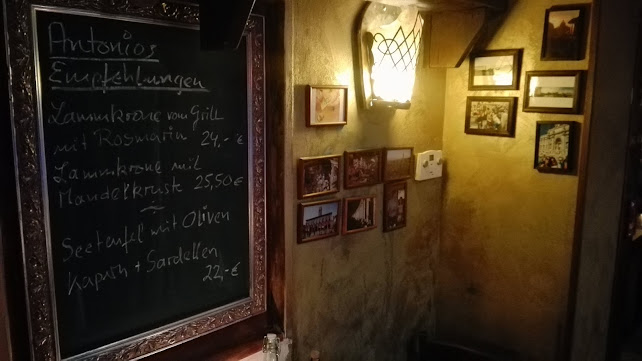 Antonios
Empfehlungen
Lammkrone vom Grill
mit Rosmarin 24,-€
Lammkrone mit
Mandelkruste 25,50€
~
Seeteufel mit Oliven
Kapern + Sardellen
22,-€